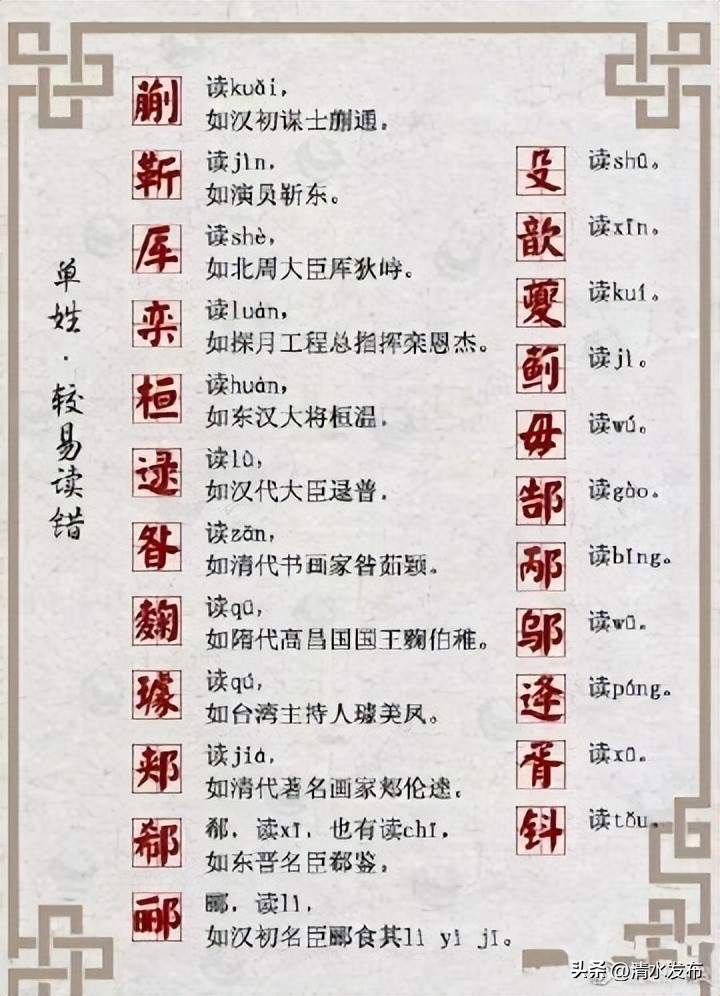 单姓·较易读错
蒯
读kuǎi，
如汉初谋士蒯通。
靳
读jìn，
如演员靳东。
厍
读shè，
如北周大臣厍狄峙。
栾
读luán，
如探月工程总指挥栾恩杰。
桓
读huán，
如东汉大将桓温。
逯
读lù，
如汉代大臣逯普。
昝
读zǎn，
如清代书画家昝茹颖。
麴
读qū，
如隋代高昌国国王麴伯稚。
璩
读qú，
如台湾主持人璩美凤。
郏
读jiá，
如清代著名画家郏伦逵。
郗
郗，读xī，也有读chī，
如东晋名臣郗鉴。
郦
郦，读lì，
如汉初名臣郦食其lì yì jī。
殳
读shū。
歆
读xīn。
夔
读kuí。
蓟
读jì。
毋
读wú。
郜
读gào。
邴
读bǐng。
邬
读wū。
逄
读páng。
胥
读xū。
钭
读tǒu。
头条 @清水发布